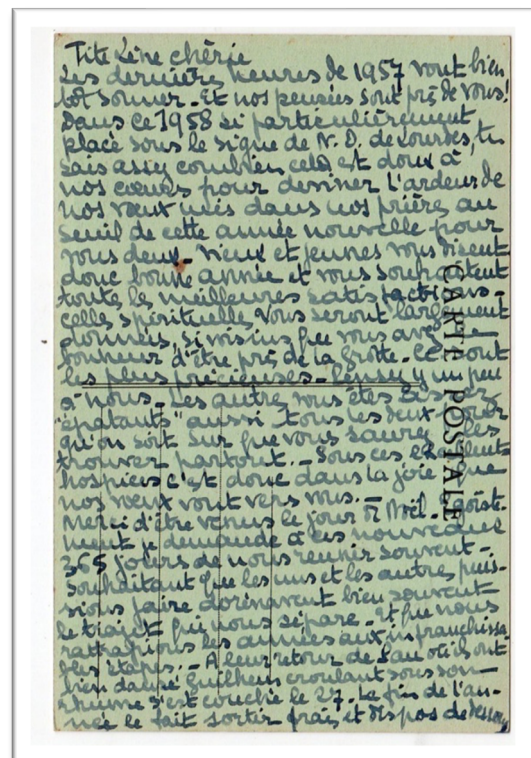 Tite Line chérie
Les dernières heures de 1957 vont bien
tôt sonner. Et nos pensées sont près de vous!
Dans ce 1958 si particulièrement
placé sous le signe de N. D. de Lourdes, tu
sais assez combien cela est doux à
nos cœurs pour deviner l'ardeur de
nos vœux mis dans nos prières au
seuil de cette année nouvelle pour
vous deux. Vieux et jeunes vous disent
donc bonne année et vous souhaitent
toutes les meilleures satisfactions -
celles spirituelles vous seront largement
données, si voisins que vous avez le
bonheur d'être près de la Grotte. Ce sont
les plus précieuses - y un peu
à nous. Les autres vous êtes assez
"épatants" aussi tous les deux pour
qu'on soit sur que vous saurez les
trouver partout. - Sous ces excellents
hospices c'est donc dans la joie que
nos vœux vont vers vous. -
Merci d'être venus le jour de Noël. Egoïste-
ment je demande à ces nouveaux
365 jours de nous réunir souvent -
souhaitant que les uns et les autres puis-
sions faire dorénavant bien souvent
le trajet qui nous sépare. Et que nous
rattrapions les années aux infranchissa-
bles étapes. - A leur retour de Pau où ils ont
bien dansé Guilhem croulant sous son
rhume s'est couché le 27. La fin de l'an-
née le fait sortir frais et dispos de dessous
CARTE POSTALE